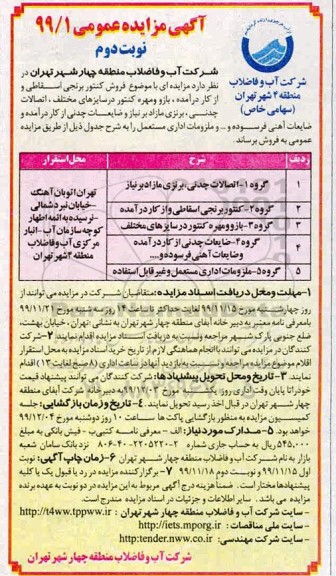 آگهی مزایده عمومی ۹۹/۱
نوبت دوم
شرکت آب و فاضلاب
منطقه ۴ شهر تهران
(سهامی خاص)
شرکت آب و فاضلاب منطقه چهار شهر تهران در
نظر دارد مزایده ای با موضوع فروش کنتور برنجی اسقاطی و
از کار درآمده ، بازو و مهره کنتور در سایزهای مختلف ، اتصالات
چدنی ، برنزی مازاد بر نیاز و ضایعات چدنی از کار درآمده و
ضایعات آهنی فرسوده و... و ملزومات اداری مستعمل را به شرح جدول ذیل از طریق مزایده
عمومی به فروش برساند.
ردیف شرح محل استقرار
۱ گروه ۱- اتصالات چدنی، برنزی مازاد بر نیاز
۲ گروه ۲- کنتور برنجی اسقاطی و از کار درآمده
۳ گروه ۳- بازو و مهره کنتور در سایزهای مختلف
۴ گروه ۴- ضایعات چدنی از کار درآمده
وضایعات آهنی فرسوده و....
۵ گروه ۵- ملزومات اداری مستعمل و غیر قابل استفاده
تهران اتوبان آهنگ
-خیابان نبرد شمالی
-نرسیده به ائمه اطهار
کوچه سازمان آب - انبار
مرکزی آب و فاضلاب
منطقه ۴ شهر تهران
۱-مهلت و محل دریافت اسناد مزایده: متقاضیان شرکت در مزایده می توانند از
روز چهارشنبه مورخ ۹۹/۱۱/۱۵ لغایت حداکثر تا ساعت ۱۴ روز سه شنبه مورخ ۹۹/۱۱/۲۱
بامعرفی نامه معتبر به دبیر خانه آبفای منطقه چهار شهر تهران به نشانی: تهران ، خیابان بهشت،
ضلع جنوبی پارک شهر مراجعه ونسبت به دریافت اسناد مزایده اقدام نمایند ۲-شرکت
کنندگان در مزایده می توانند با انجام هماهنگی لازم از تاریخ خرید اسناد مزایده به محل استقرار
اقلام موضوع مزایده مراجعه ونسبت به بازدید آنها در ساعت اداری (۸ صبح لغایت ۱۳) اقدام
نمایند ۳-تاریخ و محل تحویل پیشنهادها: شرکت کنندگان می توانند پیشنهاد قیمت
خودرا تا پایان وقت اداری روز یکشنبه مورخ ۹۹/۱۲/۰۳ به دبیر خانه شرکت آبفای منطقه
چهار شهر تهران در قبال اخذ رسید تحویل نمایند. ۴-تاریخ و زمان بازگشایی: جلسه
کمیسیون مزایده به منظور بازگشایی پاکت ها ساعت ۱۰ روز دوشنبه مورخ ۹۹/۱۲/۰۴
خواهد بود. ۵-مدارک مورد نیاز: الف - معرفی نامه کتبی ب - فیش بانکی به مبلغ
۵۴۵,۰۰۰ ریال به حساب جاری شماره نزد بانک سامان شعبه
بازار به نام شرکت آب و فاضلاب منطقه چهار شهر تهران ۶-زمان چاپ آگهی: نوبت
اول ۹۹/۱۱/۱۵ و نوبت دوم ۹۹/۱۱/۱۸ ۷- برگزار کننده مزایده در رد یا قبول یک یا کلیه
پیشنهادها مختار است . ضمناً هزینه درج آگهی مربوط به این مزایده در دو نوبت به عهده برنده
مزایده می باشد . سایر اطلاعات و جزئیات در اسناد مزایده مندرج است.
-سایت شرکت آب و فاضلاب منطقه چهار شهر تهران : http://t4ww.tppww.ir
-سایت ملی مناقصات : http://iets.mporg.ir
-سایت شرکت مهندسی: http:tender.nww.co.ir
شرکت آب و فاضلاب منطقه چهار شهر تهران